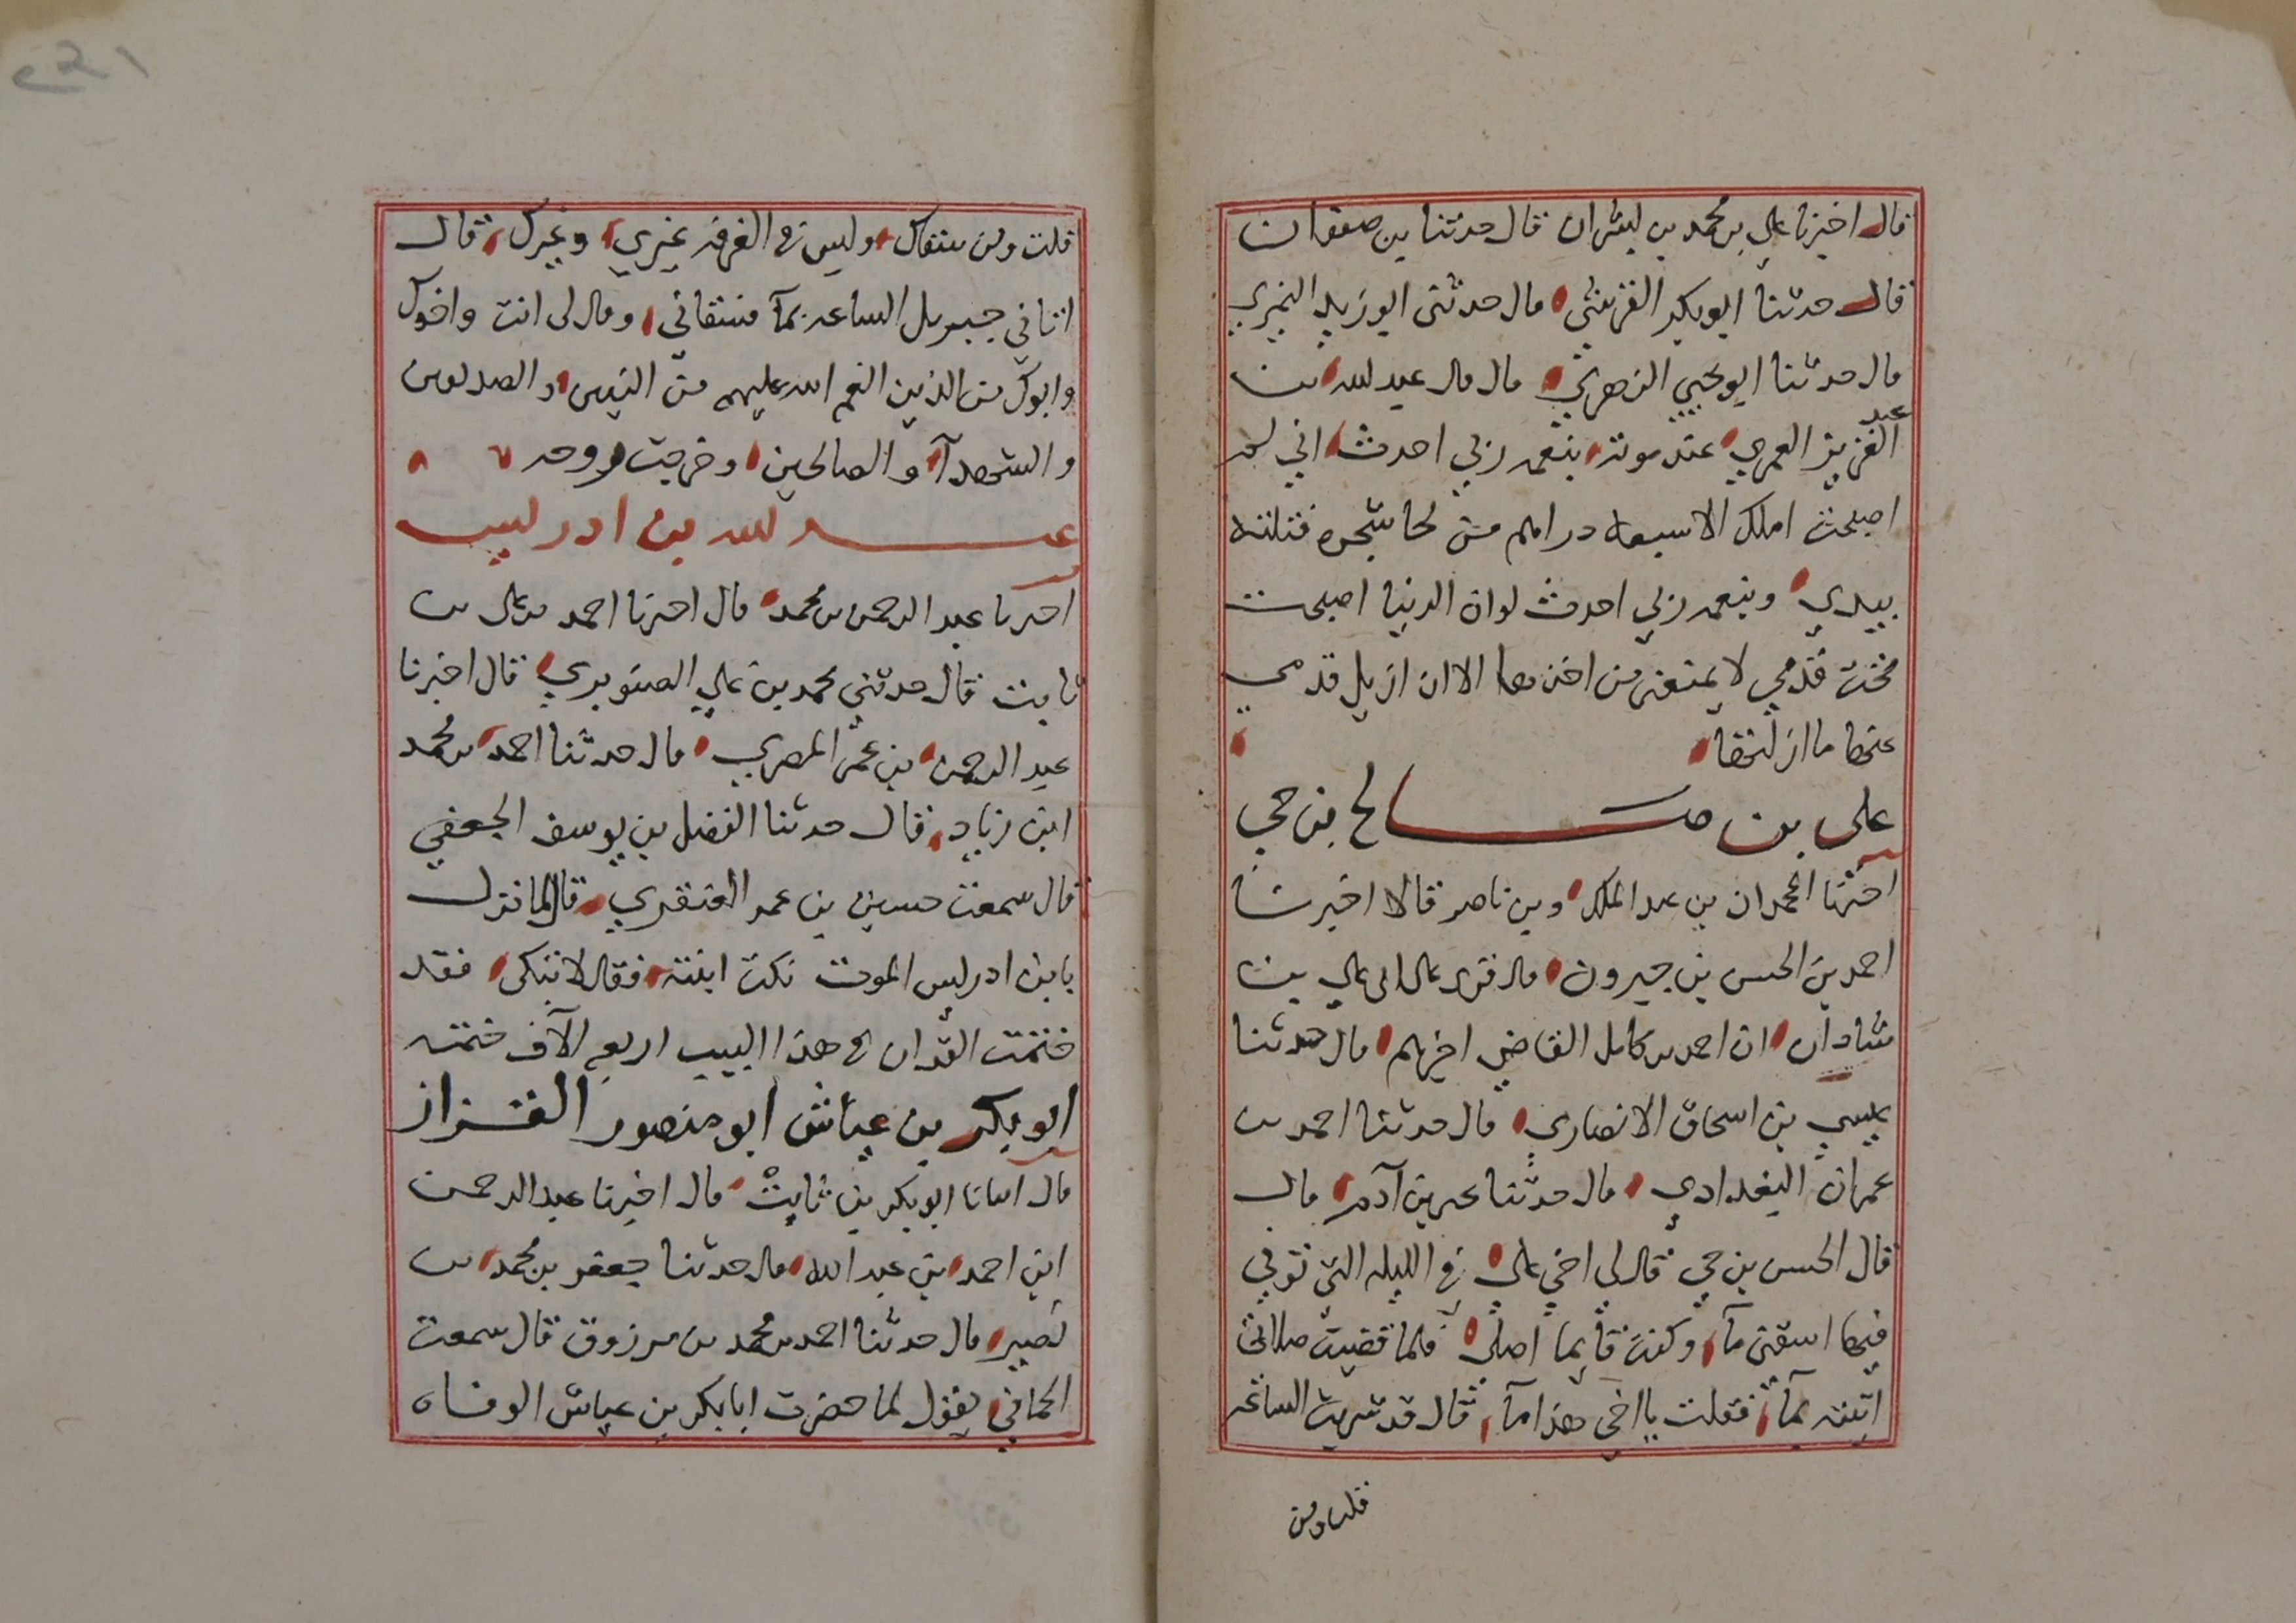 قال اخبرنا علي بن محمد بن بشران قال حدثنا بن صفوان
قال حدثنا ابو بكر القرشي قال حدثني ابو زيد النميري
قال حدثنا ابو يحيي الزهري قال قال عبد لله بن
عبد العزيز العمري عند موته بنعمه ربي احدث اني لم
اصبحت املك الا سبعه دراهم من لحا شجره فتلته
بيدي وبنعمه ربي احدث لوان الدنيا اصبحت
تحت قدمي لا يمنعني من اخذها الا ان ازيل قدمي
عنها ما ازلتها
علي بن صالح بن حي
اخبرنا المحمدان بن عبد الملك وبن ناصر قالا اخبرنا
احمد بن الحسن بن خيرون قال قرى على ابى علي بن
شاذان ان احمد بن كامل القاضي اخبرهم قال حدثنا
عيسي بن اسحاق الانصاري قال حدثنا احمد بن
عمران البغدادي قال حدثنا يحيى بن آدم قال
قال الحسن بن حي قال لي اخي علي في الليله التي توفي
فيها اسقني مآ وكنت قايما اصلي فلما قضيت صلاتي
اتيته بمآ فقلت يا اخي هذا مآ قال قد شربت الساعه
قلت ومن
٢٤١
قلت ومن سقاك وليس في الغرفه غيري وغيرك قال
اتاني جبريل الساعه بمآ فسقاني وقال لى انت واخوك
وابوك من الذين انعم الله عليهم من النبيين والصديقين
والشهدآ والصالحين وخرجت روحه
عبد لله بن ادريس
اخبرنا عبد الرحمن بن محمد قال اخبرنا احمد بن علي بن
ثابت قال حدثني محمد بن علي الصوري قال اخبرنا
عبد الرحمن بن عمر المصري قال حدثنا احمد بن محمد
ابن زياد قال حدثنا الفضل بن يوسف الجعفي
قال سمعت حسين بن عمر العنقزي قال لما نزل
بابن ادريس الموت بكت ابنته فقال لا تبكى فقد
ختمت القران في هذا البيت اربعه الآف ختمه
ابو بكر بن عياش ابو منصور القزاز
قال انبانا ابو بكر بن ثابت قال اخبرنا عبد الرحمن
ابن احمد بن عبد الله قال حدثنا جعفر بن محمد بن
نصير قال حدثنا احمد بن محمد بن مرزوق قال سمعت
الحماني يقول لما حضرت ابا بكر بن عياش الوفاه